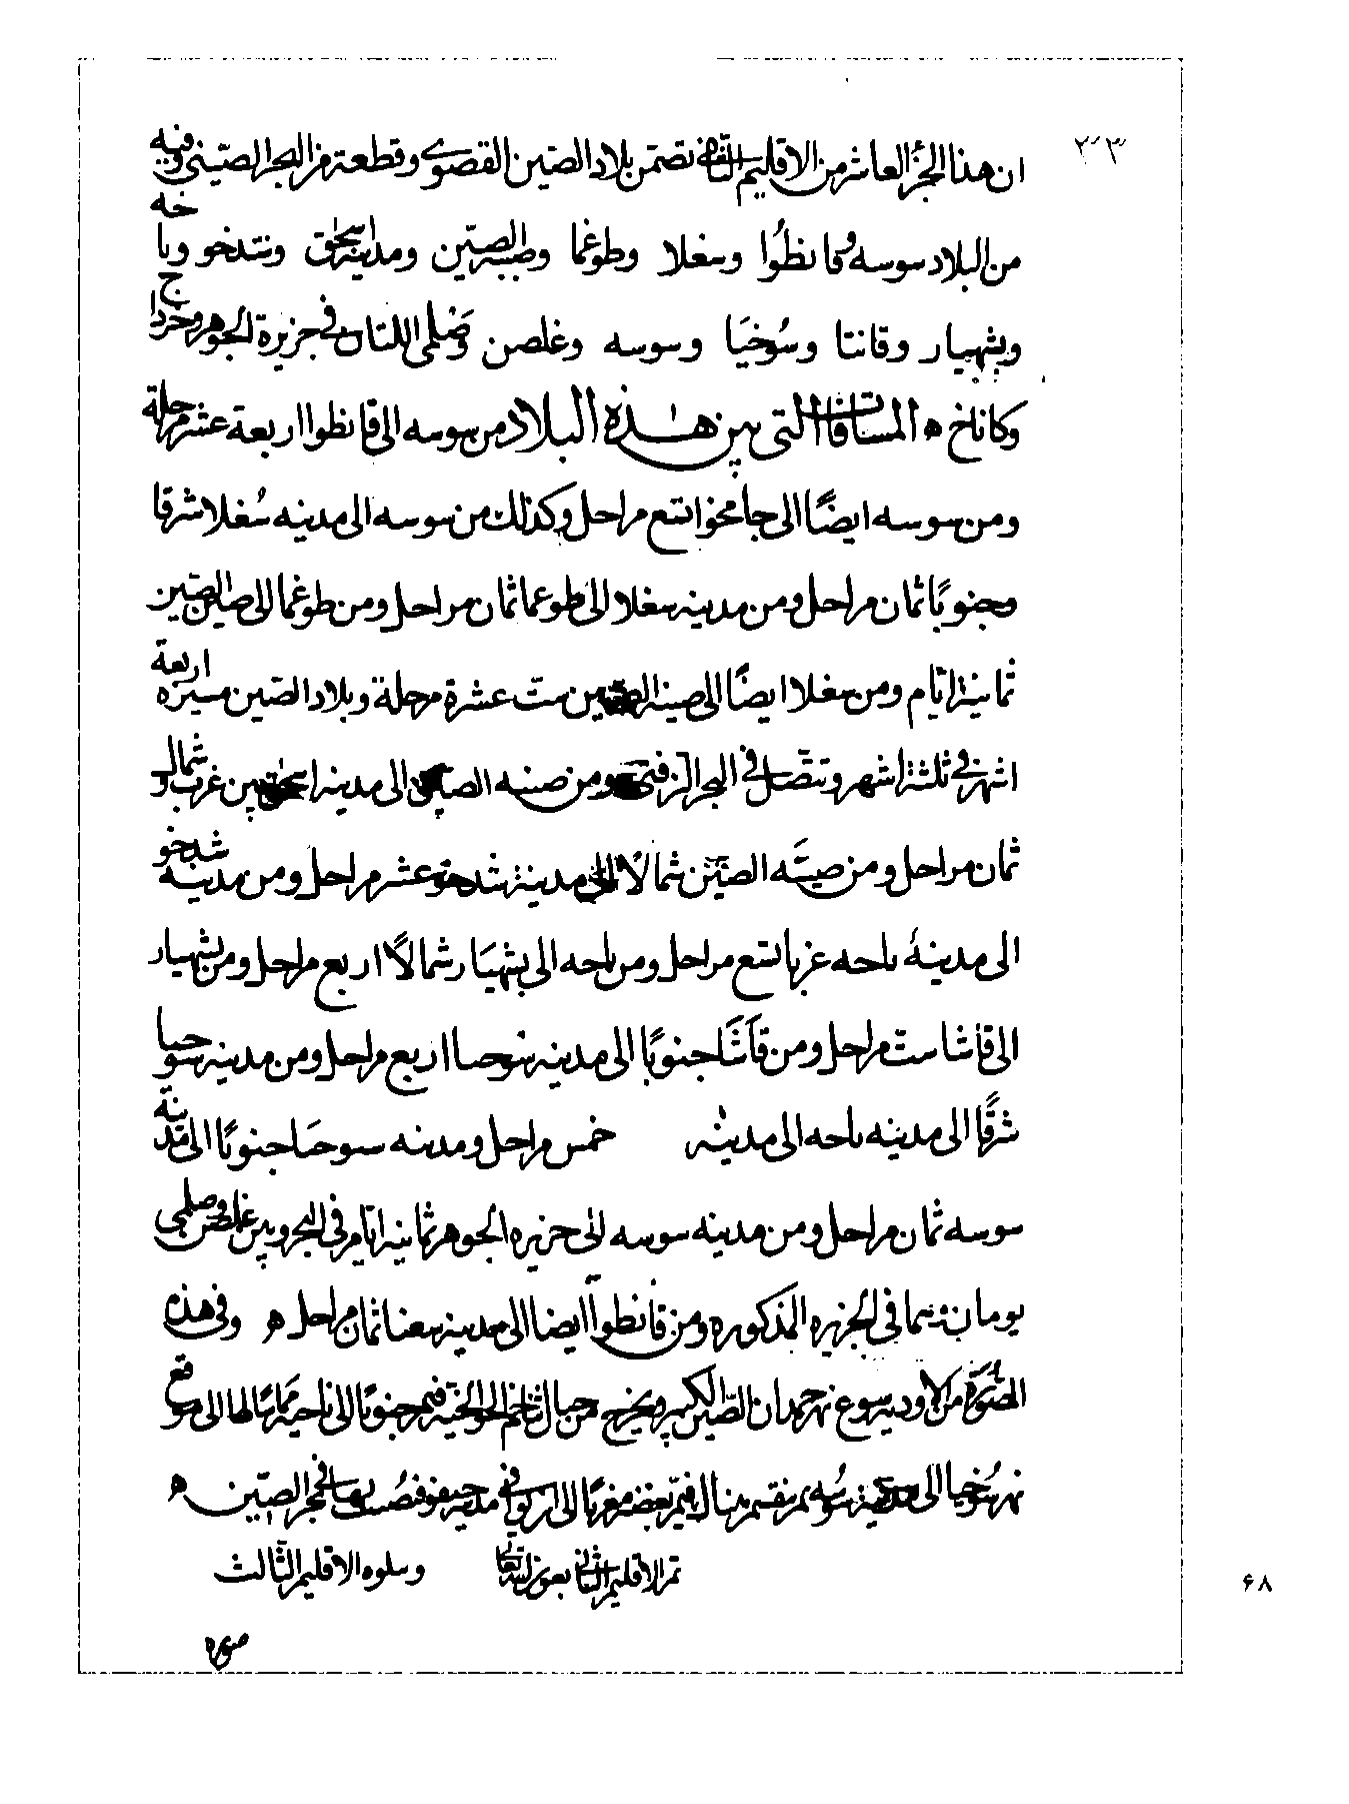 ٢٠٣
ان هذا الجزء العاشر من الاقليم الثانى تضمن بلاد الصين القصوى وقطعة من البحر الصينى وفيه
من البلاد سوسه وقانطُوا وسغلا وطوغما وصينية الصين ومدينة اسخاق وشدخو وباجه
وبشهيار وقاشا وسُوخيَا وسوسه وغلصن وضلمى اللتان فى جزيرة الجوهر
وكاناخ ه المسافات التى بين هذه البلاد من سوسه الى قانطوا اربعة عشر مرحلة
ومن سوسه ايضًا الى جامخوا تسع مراحل وكذلك من سوسه الى مدينه سُغلا شرقا
وجنوبًا ثمان مراحل ومن مدينه سغلا الى طوعما ثمان مراحل ومن طوغما الى الصين
ثمانية ايام ومن سغلا ايضًا الى صينية الصين ست عشرة مرحلة وبلاد الصين مسيرة اربعة
اشهر فى ثلثة اشهر وتتصل فى البحر الزفتى ومن صينيه الصين الى مدينه اسخاق بين غرب وشمال
ثمان مراحل ومن صينيَّه الصين شمالًا الى مدينة شدخو عشر مراحل ومن مدينه شدخو
الى مدينهٔ باجه غربا تسع مراحل ومن باجه الى بشهيَار شمالًا اربع مراحل ومن بشهيار
الى قاشا ست مراحل ومن قَاشَا جنوبًا الى مدينه سوخيا اربع مراحل ومن مدينه سوخيا
شرقًا الى مدينه باجه الى مدينه خمس مراحل ومدينه سوخيَا جنوبًا الى مدينة
سوسه ثمان مراحل ومن مدينه سوسه الى جزيره الجوهر ثمانية ايام فى البحر وبين غلصن وضلمى
يومان وهما فى الجزيره المذكوره ومن قانطوا ايضا الى مدينه سغلا ثمان مراحل ه وفى هذه
الصُّورَة من الاوديه نهر حمدان الصين الكبير ويخرج من جبال فيمر جنوبًا الى ناحية الى موقع
نهر سُوخيا الى مدينة سُوسه ثم ينقسم هناك فيمر بعضه مغربًا الى مدينة فى بحر الصين ه
تم الاقليم الثانى بعون الله تعالى وىىلوه الاقليم الثالث
صوره
۶۸